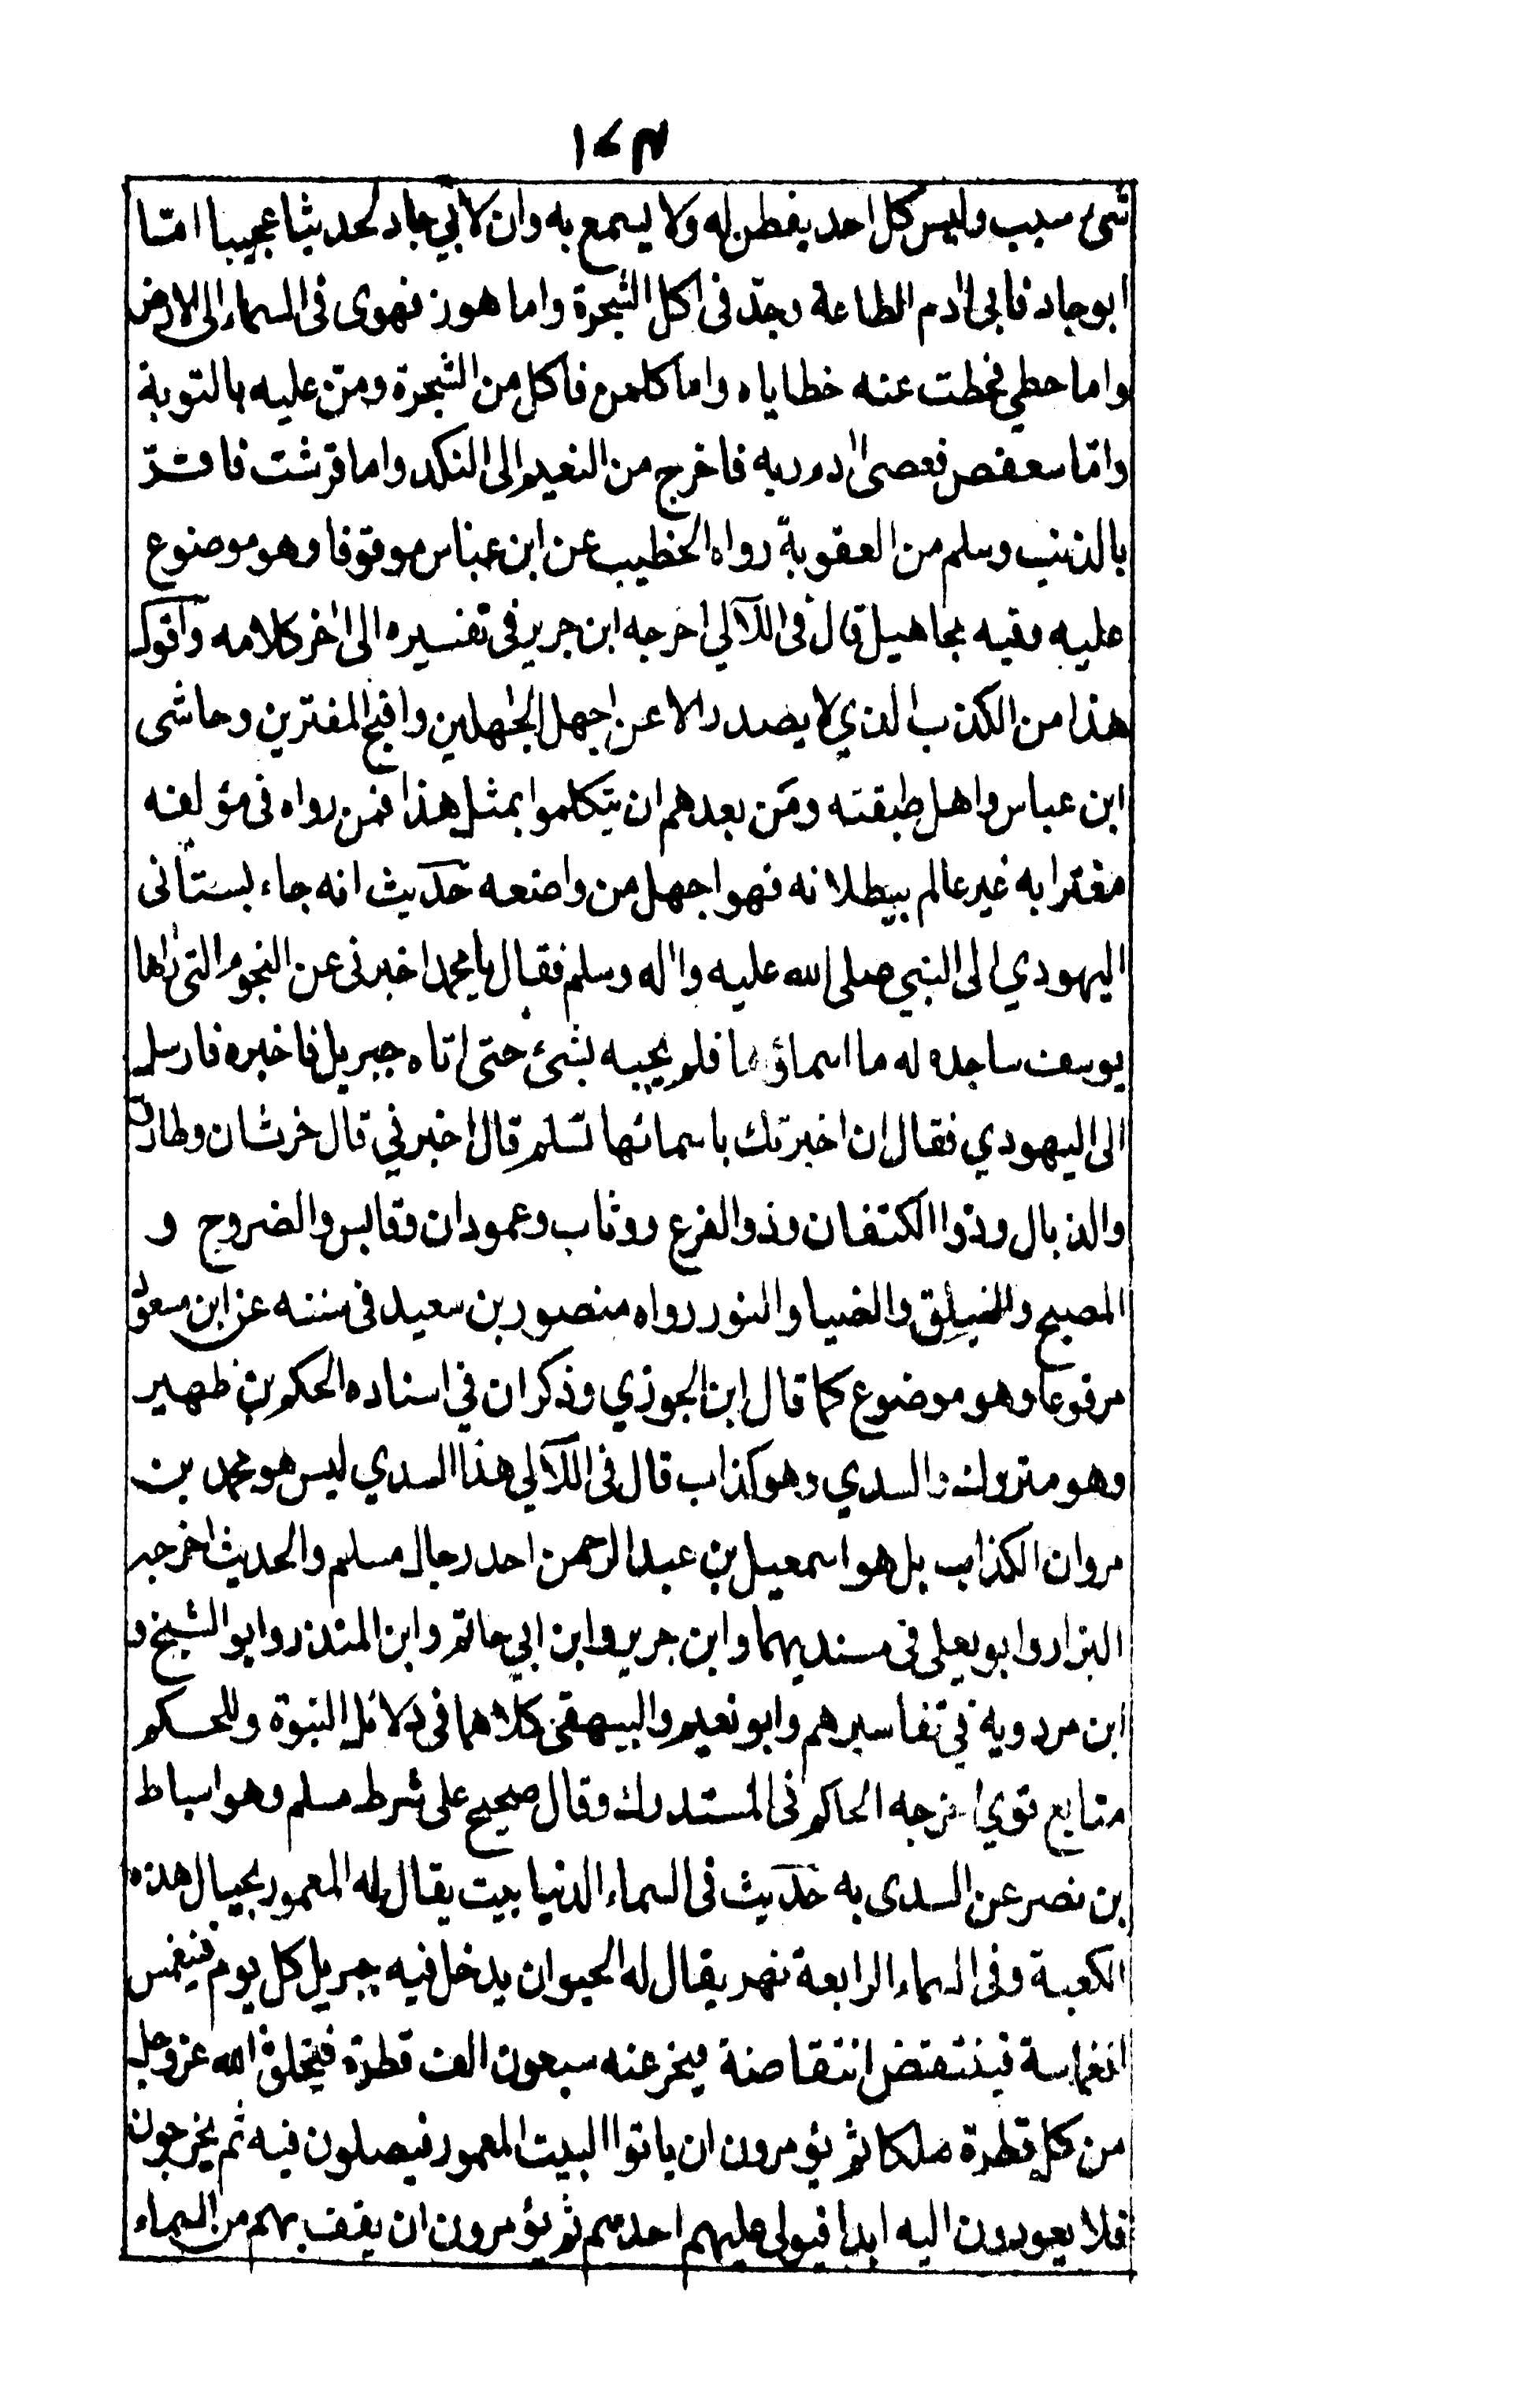 ١٧٣
شئ سبب وليس كل احد يفطن له ولا يسمع به وان لابي جاد لحديثا عجيبا امّا
ابو جاد فابى اٰدم الطاعة وجدّ فى اكل الشجرة واما هوز فهوى فى السماء الى الارض
واما حطي فحطت عنه خطاياه واما كلمن فاكل من الشجرة ومنّ عليه بالتوبة
وامّا سعفص فعصى اٰدم ربه فاخرج من النعيم الى النكد واما قرشت فاقرّ
بالذنب وسلم من العقوبة رواه الخطيب عن ابن عباس موقوفا وهو موضوع
عليه وفيه مجاهيل قال فى اللآلي اخرجه ابن جرير فى تفسيره الى اٰخر كلامه واقول
هذا من الكذب الذي لا يصدر الا عن اجهل الجٰهلين واقبح المفترين وحاشى
ابن عباس واهل طبقته ومَن بعدهم ان يتكلموا بمثل هذا فمن رواه فى مؤلفه
مغترا به غير عالم ببطلانه فهو اجهل من واضعه حديث انه جاء بستانى
اليهودي الى النبي صلى الله عليه واٰله وسلم فقال يا محمد اخبرنى عن النجوم التى راٰها
يوسف ساجده له ما اسماؤها فلم يجبه بشئ حتى اتاه جبريل فاخبره فارسل
الى اليهودي فقال ان اخبرتك باسمائها تسلم قال اخبرني قال خرشان وطارق
والذبال وذوا الكتفان وذو الفرع ووثاب وعمودان وقابس والضروج و
المصبح والفيلق والضيا والنور رواه منصور بن سعيد فى سننه عن ابن مسعود
مرفوعا وهو موضوع كما قال ابن الجوزي وذكر ان في اسناده الحكم بن ظهير
وهو متروك والسدي وهو كذاب قال فى اللآلي هذا السدي ليس هو محمد بن
مروان الكذاب بل هو اسمعيل بن عبد الرحمن احد رجال مسلم والحديث اخرجه
البزار وابو يعلى فى مسنديهما وابن جرير وابن ابي حاتم وابن المنذر وابو الشيخ و
ابن مردويه في تفاسيرهم وابو نعيم والبيهقى كلاهما فى دلائل النبوة وللحكم
متابع قوي اخرجه الحاكم فى المستدرك وقال صحيح على شرط مسلم وهو اسباط
بن نصر عن السدى به حديث فى السماء الدنيا بيت يقال له المعمور بحيال هذه
الكعبة وفى السماء الرابعة نهر يقال له الحيوان يدخل فيه جبريل كل يوم فينغمس
انغماسة فينتفض انتقاضة يخر عنه سبعون الف قطرة فيخلق الله عز وجل
من كل قطرة ملكا ثم يؤمرون ان ياتوا البيت المعمور فيصلون فيه ثم يخرجون
فلا يعودون اليه ابدا فيولى عليهم احدهم ثم يؤمرون ان يقف بهم من السماء